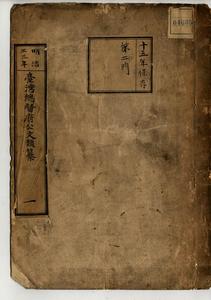 十五年保存
第二門
明治
三三年
臺灣總督府公文類纂
一